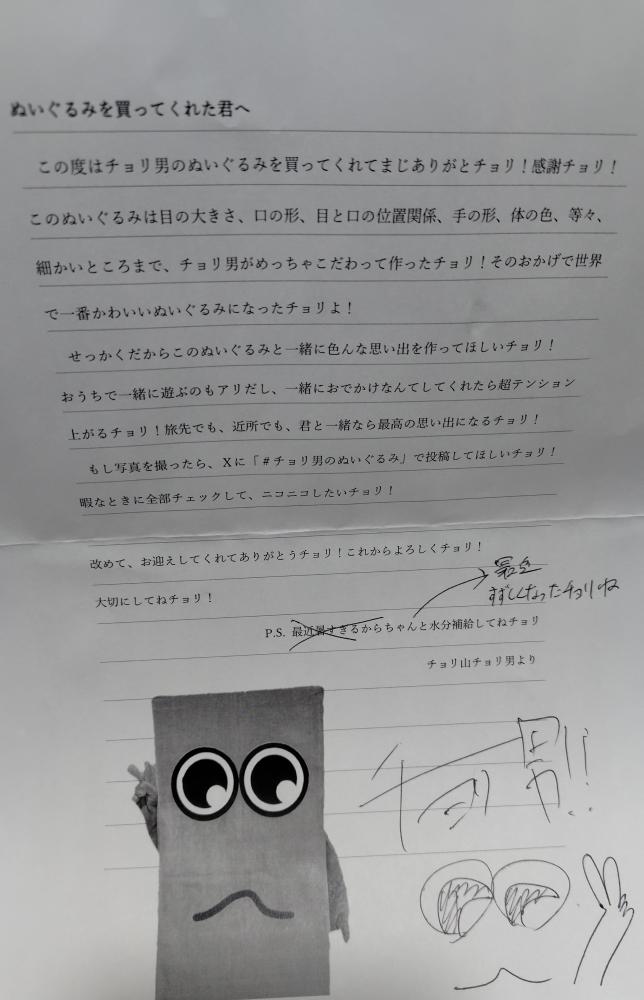 ぬいぐるみを買ってくれた君へ
この度はチョリ男のぬいぐるみを買ってくれてまじありがとチョリ！感謝チョリ！
このぬいぐるみは目の大きさ、口の形、目と口の位置関係、手の形、体の色、等々、
細かいところまで、チョリ男がめっちゃこだわって作ったチョリ！そのおかげで世界
で一番かわいいぬいぐるみになったチョリよ！
せっかくだからこのぬいぐるみと一緒に色んな思い出を作ってほしいチョリ！
おうちで一緒に遊ぶのもアリだし、一緒におでかけなんてしてくれたら超テンション
上がるチョリ！旅先でも、近所でも、君と一緒なら最高の思い出になるチョリ！
もし写真を撮ったら、Xに「＃チョリ男のぬいぐるみ」で投稿してほしいチョリ！
暇なときに全部チェックして、ニコニコしたいチョリ！
改めて、お迎えしてくれてありがとうチョリ！これからよろしくチョリ！
大切にしてねチョリ！
すずしくなったチョリね
P.S. 最近暑すぎるからちゃんと水分補給してねチョリ
チョリ山チョリ男より
チョリ男!!